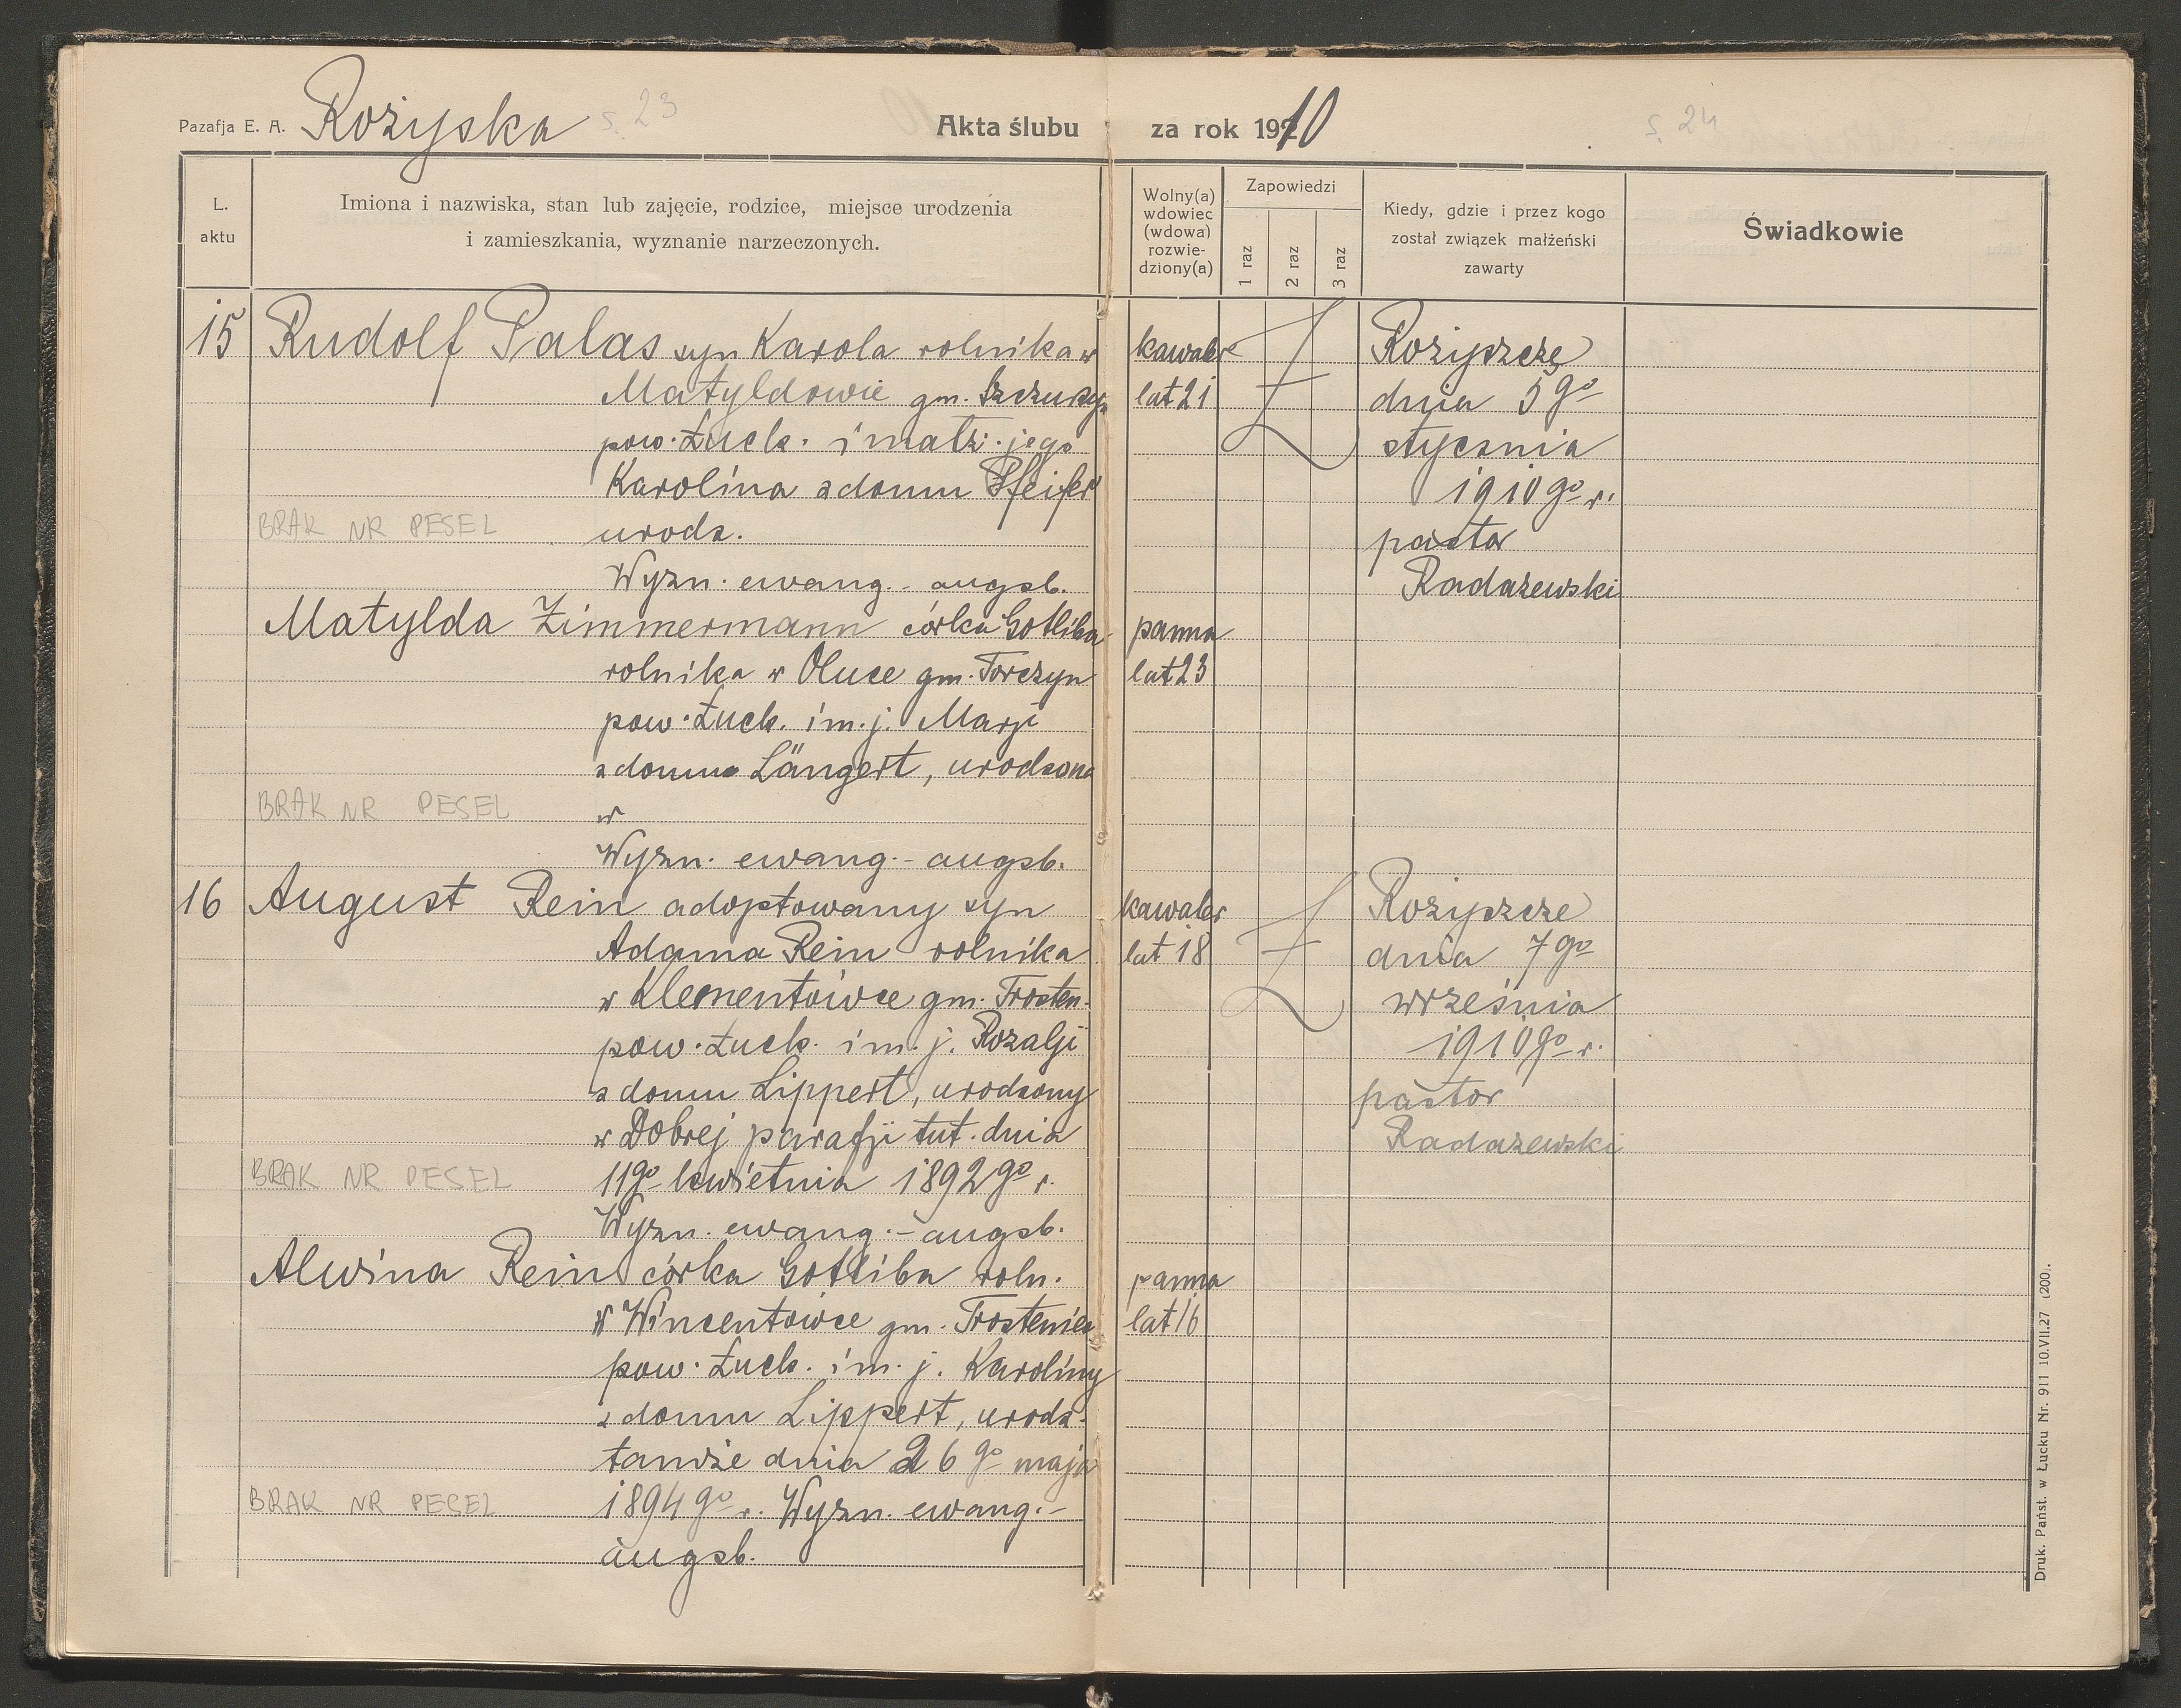 Pazafja E. A. Rożyska s. 23 Akta ślubu za rok 1910 s. 24
L. aktu
Imiona i nazwiska, stan lub zajęcie, rodzice, miejsce urodzenia
i zamieszkania, wyznanie narzeczonych.
Wolny(a)
wdowiec
(wdowa)
rozwie-
dziony(a)
Zapowiedzi
1 raz 2 raz 3 raz
Kiedy, gdzie i przez kogo
został związek małżeński
zawarty
Świadkowie
15 Rudolf Palas syn Karola rolnika w
Matyldowie gm. Szczurzyn
pow. Łuck. i małż. jego
Karolina z domu Pfeifer
BRAK NR PESEL urodz.
Wyzn. ewang.- augsb.
kawaler
lat 21
Rożyszcze
dnia 5go
stycznia
1910go r.
pastor
Radaszewski
Matylda Zimmermann córka Gotliba
rolnika w Oluce gm. Torczyn
pow. Łuck. i m. j. Marji
z domu Längert, urodzona
BRAK NR PESEL w
Wyzn. ewang.- augsb.
panna
lat 23
16 August Rein adoptowany syn
Adama Rein rolnika
w Klementówce gm. Trosten.
pow. Łuck. i m. j. Rozalji
z domu Lippert, urodzony
w Dobrej parafji tut. dnia
BRAK NR PESEL 11go kwietnia 1892go r.
Wyzn. ewang.- augsb.
kawaler
lat 18
Rożyszcze
dnia 7go
września
1910go r.
pastor
Radaszewski
Alwina Rein córka Gotliba roln.
w Wincentówce gm. Trosteniec
pow. Łuck. i m. j. Karoliny
z domu Lippert, urodz.
tamże dnia 26go maja
BRAK NR PESEL 1894go r. Wyzn. ewang.-
augsb.
panna
lat 16
Druk. Państ. w Łucku Nr. 911 10.VII.27 (200).